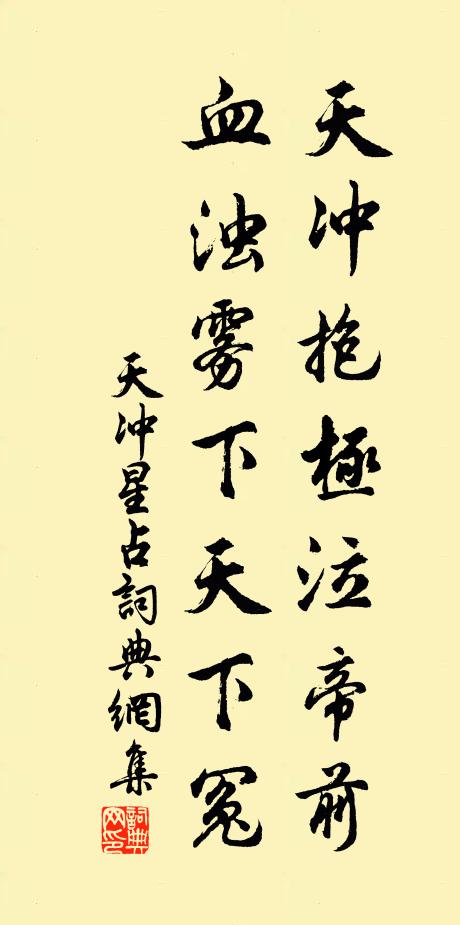 天冲抱極泣帝前
血浊雾下天下冤
天冲星占詞典網集
詞典網印